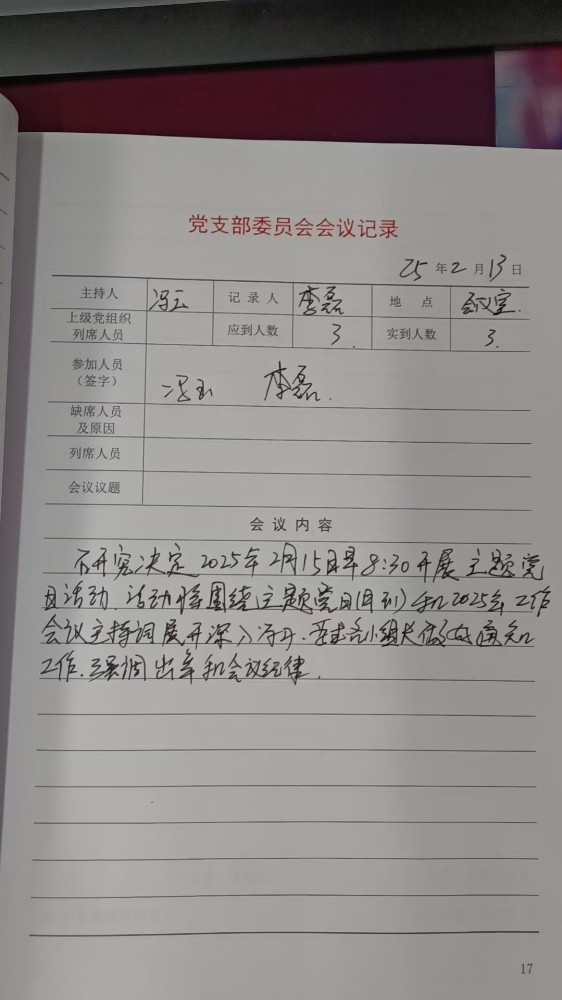 党支部委员会会议记录
25年2月13日
主持人 冯玉 记录人 李磊 地点 会议室.
上级党组织列席人员 应到人数 3. 实到人数 3.
参加人员(签字) 冯玉 李磊.
缺席人员及原因
列席人员
会议议题
会议内容
研究决定2025年2月15日早8:30开展主题党
日活动.活动将围绕主题党日(月刊)和2025年工作
会议主持词展开深入 各小组长做好通知
工作.强调出年和会议纪律.
17